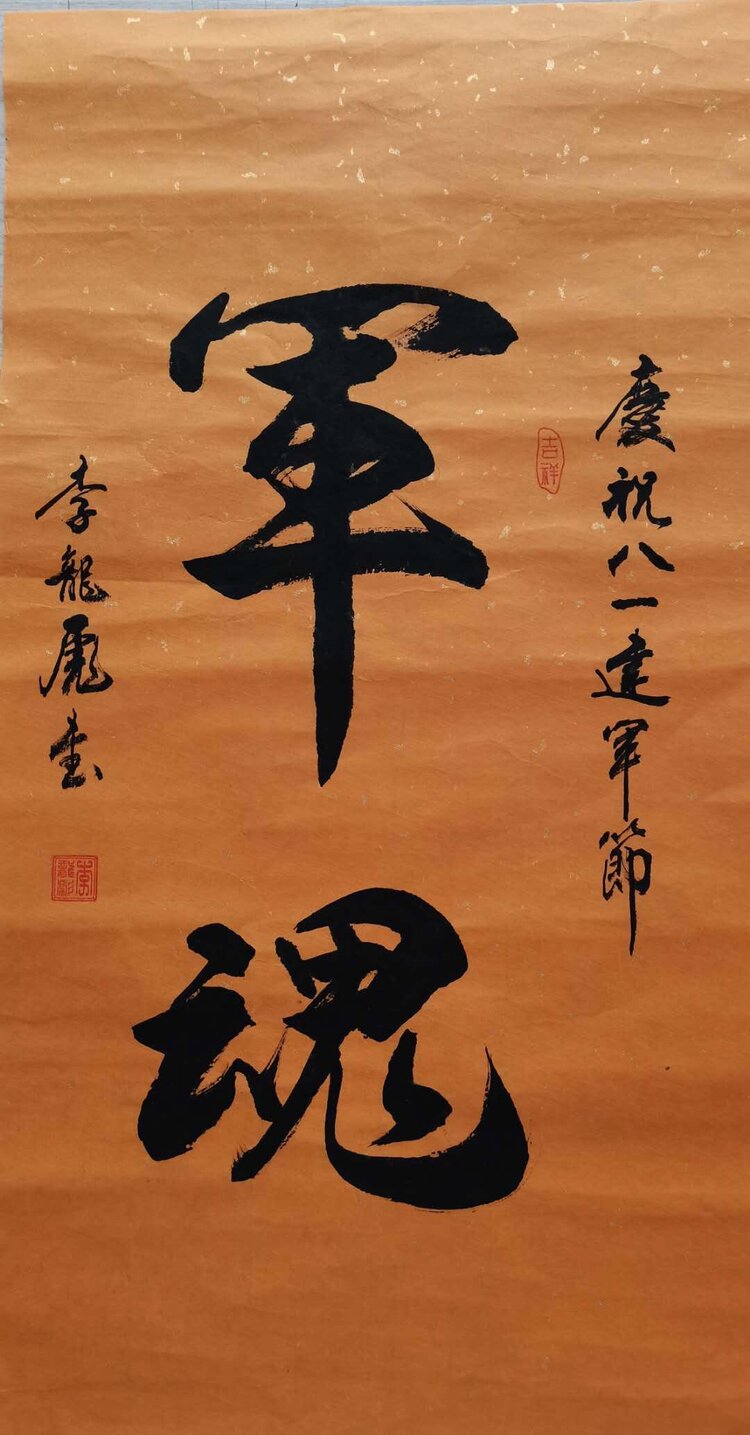 慶祝八一建軍節
吉祥
軍魂
李龍彪書